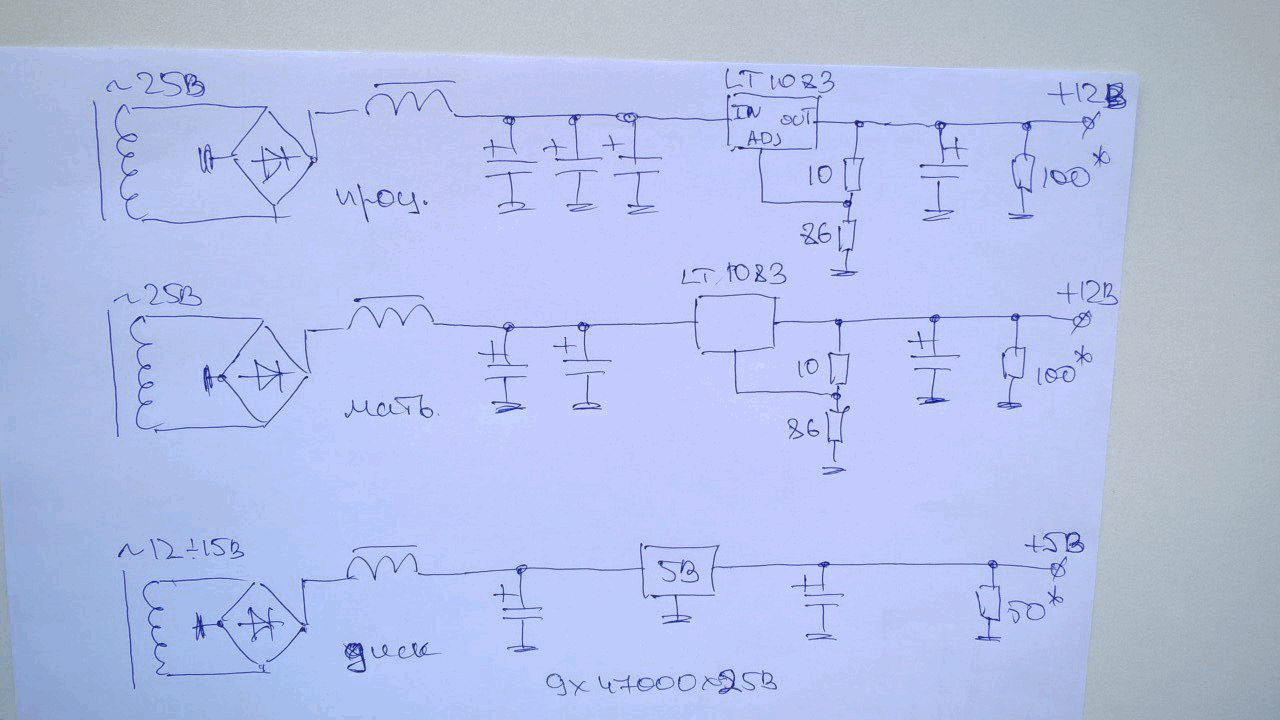 ~25В
LT1083
+12В
IN OUT
ADJ
+ + + +
10
100*
проц.
86
~25В
LT1083
+12В
+ + +
10
100*
мать.
86
~12÷15В
+5В
5В
+ +
50*
диск
9x47000x25В